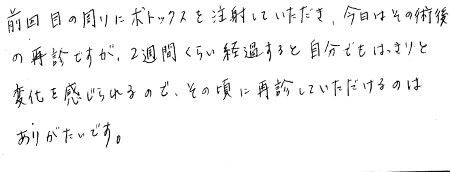 前回目の周りにボトックスを注射していただき、今日はその術後
の再診ですが、2週間くらい経過すると自分でもはっきりと
変化を感じられるので、その頃に再診していただけるのは
ありがたいです。